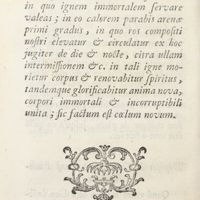 in quo ignem immortalem servare
valeas; in eo calorem parabis arenæ
primi gradus, in quo ros compositi
nostri elevatur & circulatur ex hoc
jugiter de die & nocte, citra ullam
intermissionem &c. in tali igne mo-
rietur corpus & renovabitur spiritus,
tandemque glorificabitur anima nova,
corpori immortali & incorruptibili
unita; sic factum est cœlum novum.